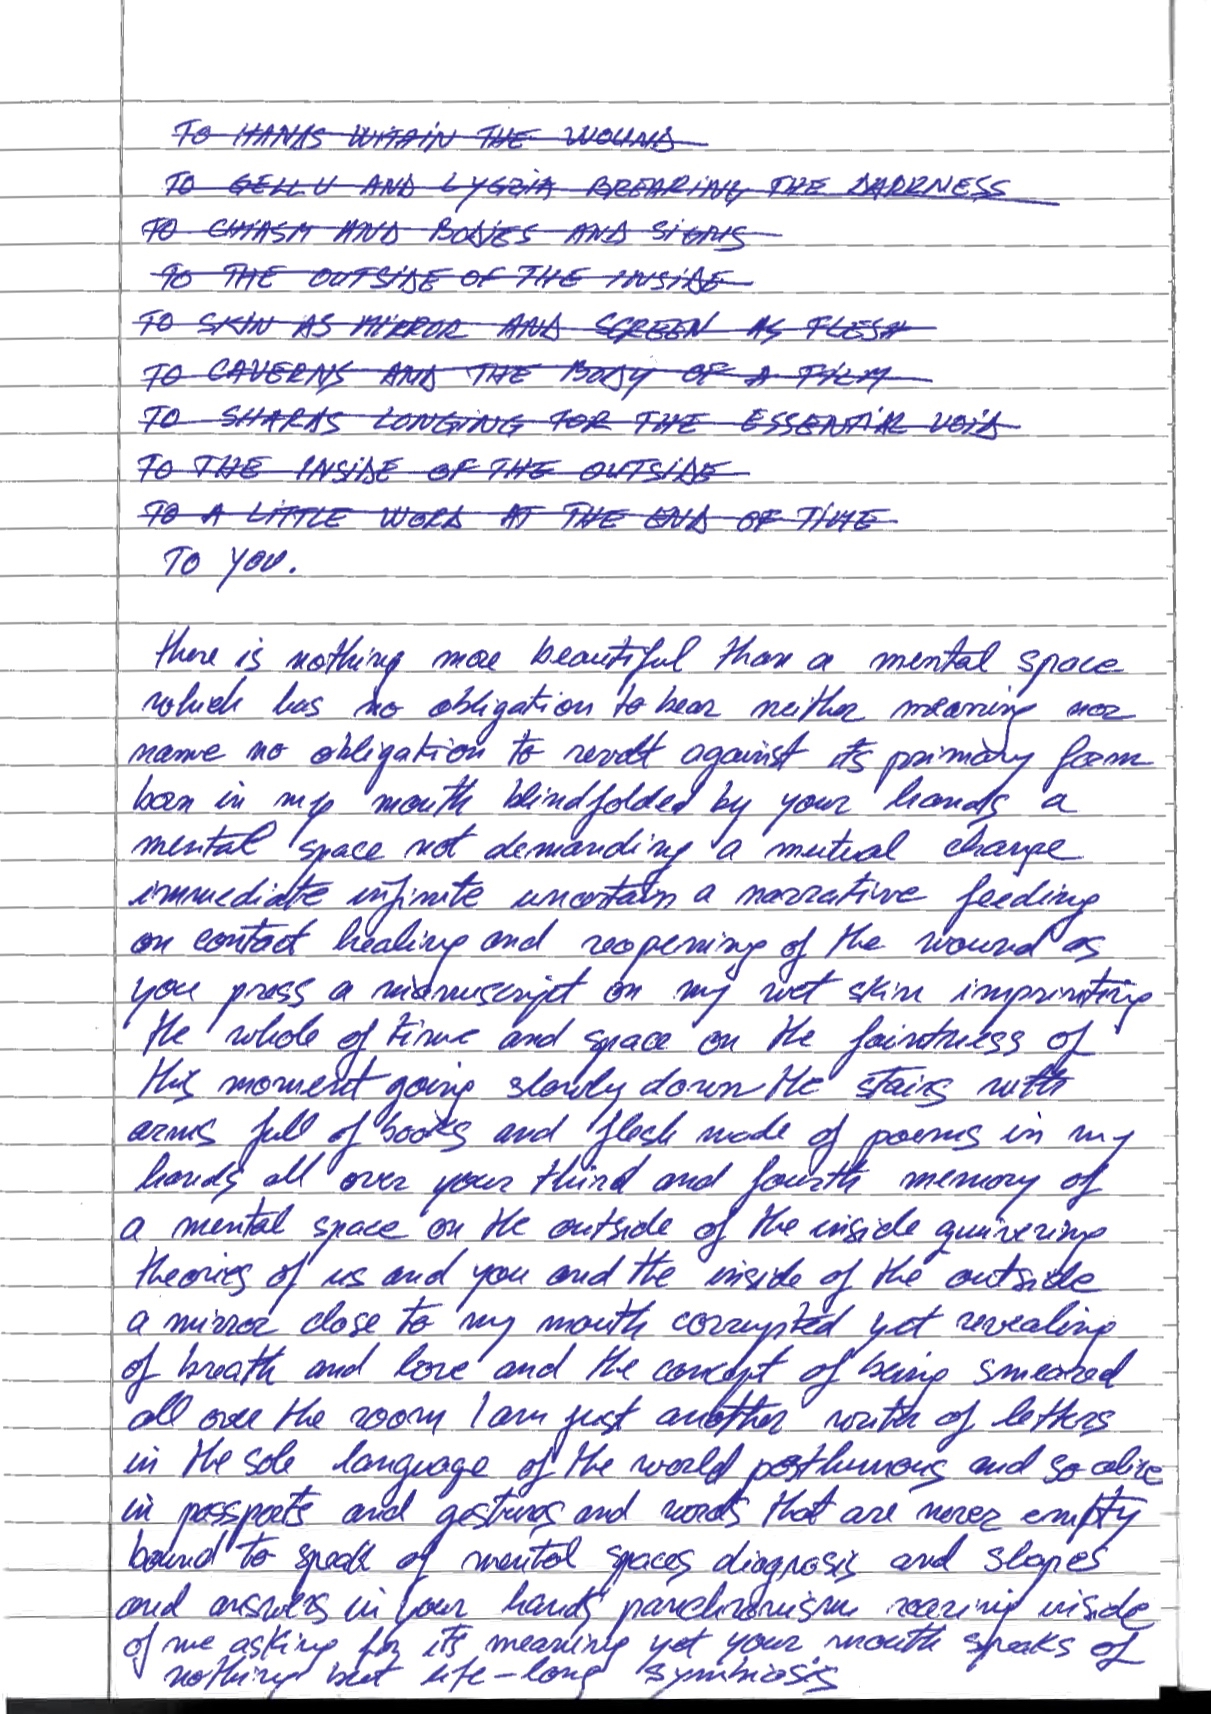 TO HANDS WITHIN THE WOUND
TO GELLU AND LYGZIA BREAKING THE DARKNESS
TO CHIASM AND BODIES AND SIGNS
TO THE OUTSIDE OF THE INSIDE
TO SKIN AS MIRROR AND SCREEN AS FLESH
TO CAVERNS AND THE BODY OF A FILM
TO SHARDS LONGING FOR THE ESSENTIAL VOID
TO THE INSIDE OF THE OUTSIDE
TO A LITTLE WORD AT THE END OF TIME
TO YOU.
there is nothing more beautiful than a mental space
which has no obligation to bear neither meaning nor
name no obligation to revolt against its primary form
born in my mouth blindfolded by your hands a
mental space not demanding a mutual change
immediate infinite uncertain a narrative feeding
on contact healing and reopening of the wound as
you press a manuscript on my wet skin imprinting
the whole of time and space on the faintness of
this moment going slowly down the stairs with
arms full of books and flesh made of poems in my
hands all over your third and fourth memory of
a mental space on the outside of the inside quivering
theories of us and you and the inside of the outside
a mirror close to my mouth corrupted yet revealing
of breath and love and the concept of being smeared
all over the room I am just another writer of letters
in the sole language of the world posthumous and so alive
in passports and gestures and words that are never empty
bound to speak of mental spaces diagnosis and slopes
and answers in your hands panchronism roaring inside
of me asking for its meaning yet your mouth speaks of
nothing but life-long symbiosis